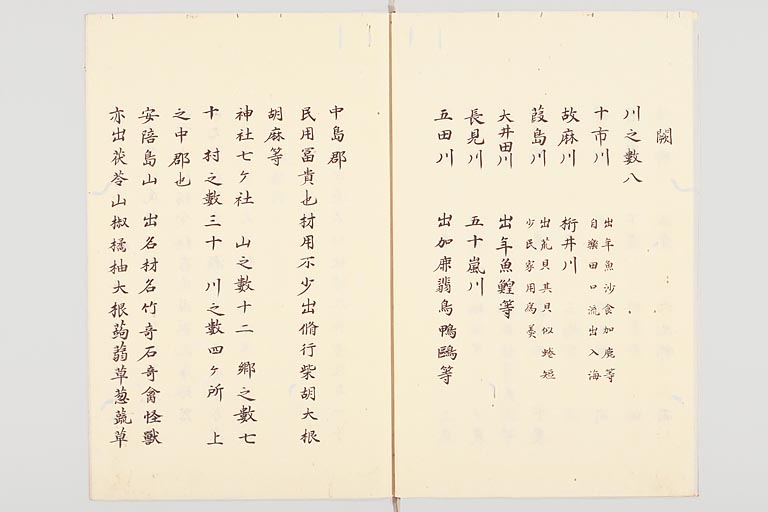 闕
川之數八
十市川 出年魚沙食加鹿等
自樂田口流出入海
故麻川 桁井川
葭島川 出荒貝其貝似蜷短
少民家用為羮
大井田川 出年魚鰉等
長見川 五十嵐川
五田川 出加鹿翡鳥鴨鷗等
中島郡
民用冨貴也材用不少出脩行柴胡大根
胡麻等
神社七ケ社 山之數十二 郷之數七
十 村之數三十 川之數四ケ所 上
之中郡也
安陪島山 出名材名竹奇石奇禽怪獸
亦出茯苓山椒橘柚大根蒟蒻草葱蔬草